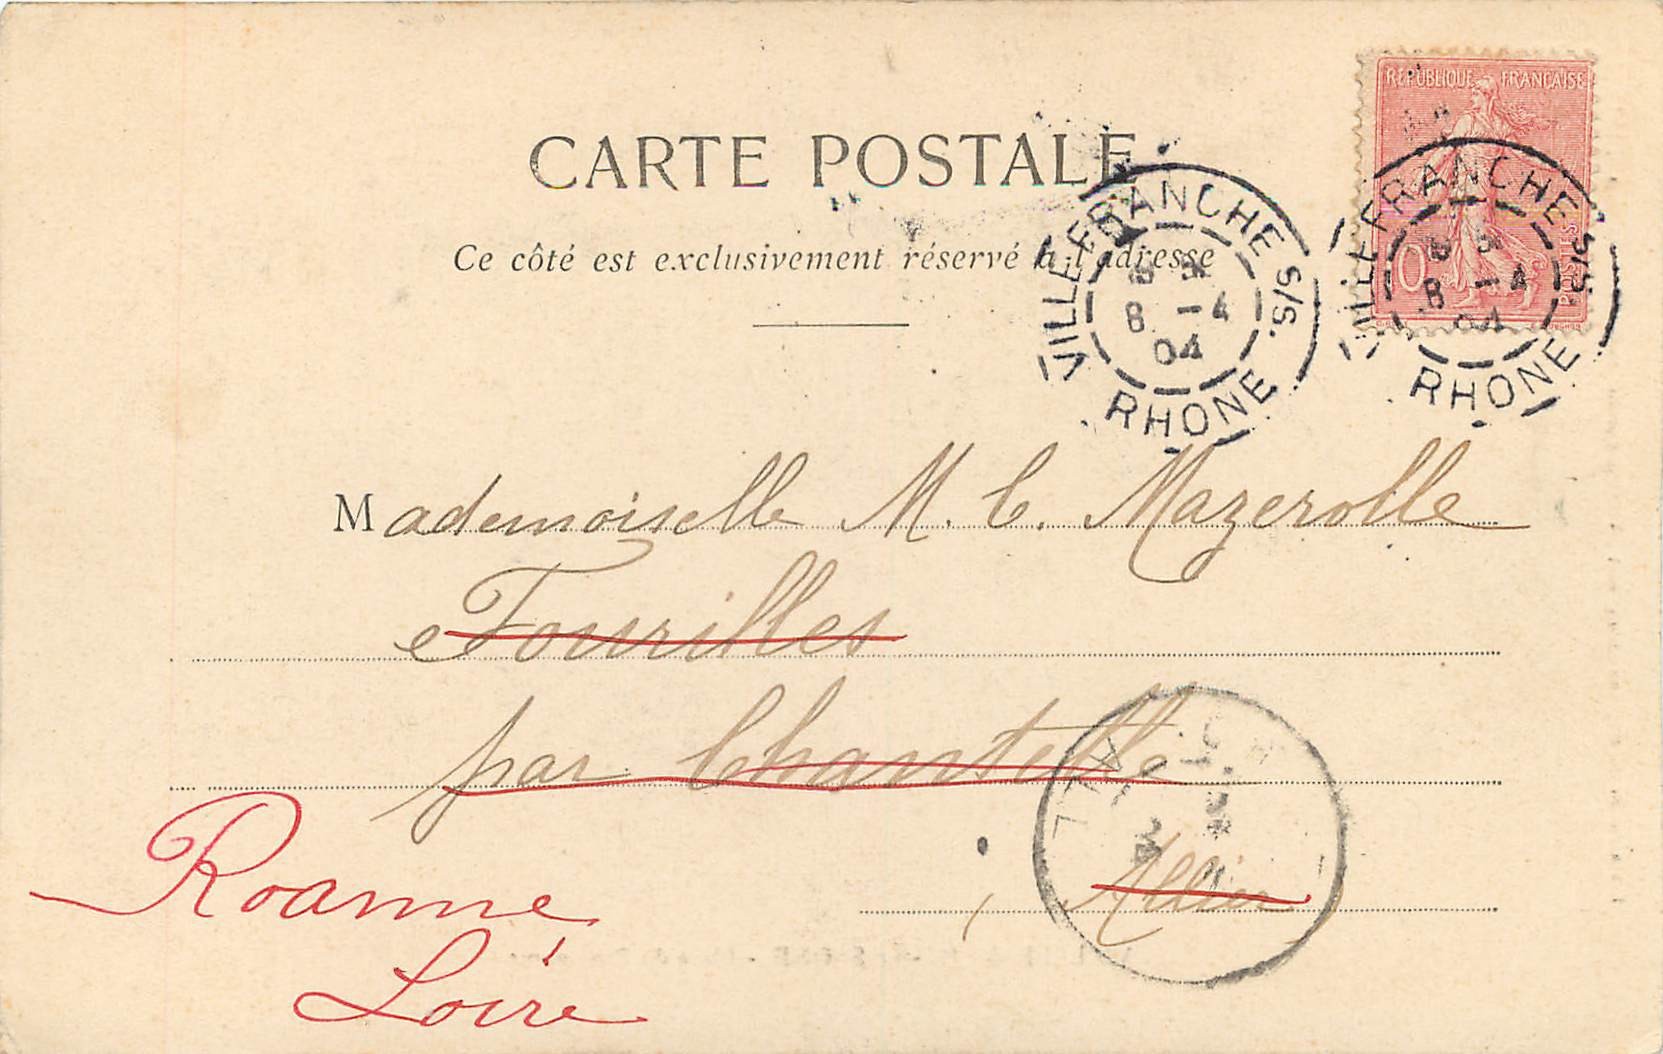 RÉPUBLIQUE FRANÇAISE
CARTE POSTALE
Ce côté est exclusivement réservé à l'adresse
VILLEFRANCHE S/S.
8 -4
04
RHONE
VILLEFRANCHE S/S.
8 -4
04
RHONE
Mademoiselle M. C. Mazerolle
Fourilles
par Chantelle
Allier
Roanne
Loire